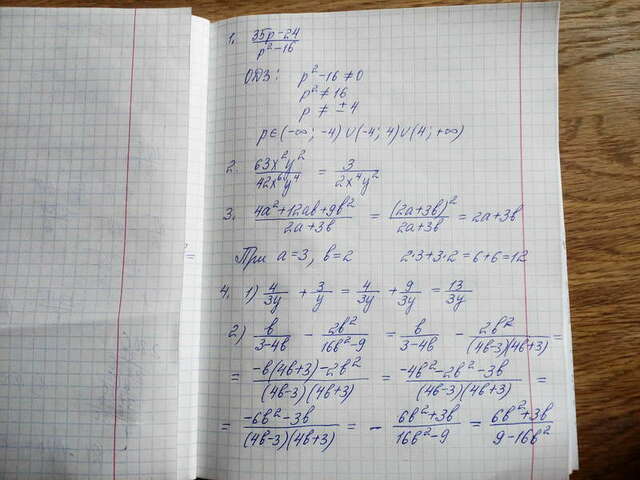 1. (35p-24)/(p²-16)
ОДЗ: p²-16≠0
p²≠16
p≠±4
p∈(-∞; -4)∪(-4; 4)∪(4; +∞)
2. 63x²y²/42x⁶y⁴ = 3/2x⁴y²
3. (4a²+12ab+9b²)/(2a+3b) = (2a+3b)²/(2a+3b) = 2a+3b
При a=3, b=2 2·3+3·2=6+6=12
4. 1) 4/3y + 3/y = 4/3y + 9/3y = 13/3y
2) b/(3-4b) - 2b²/(16b²-9) = b/(3-4b) - 2b²/(4b-3)(4b+3) =
= (-b(4b+3)-2b²)/(4b-3)(4b+3) = (-4b²-2b²-3b)/(4b-3)(4b+3) =
= (-6b²-3b)/(4b-3)(4b+3) = - (6b²+3b)/(16b²-9) = (6b²+3b)/(9-16b²)